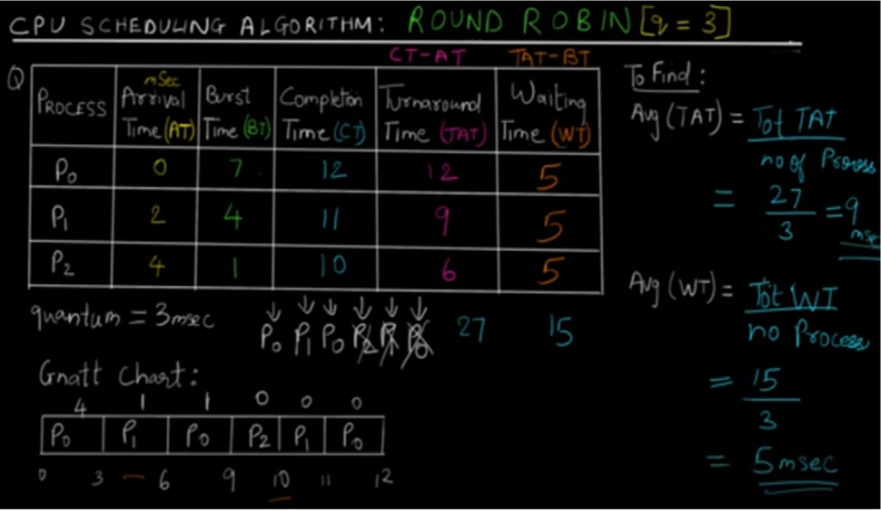 CPU SCHEDULING ALGORITHM: ROUND ROBIN [q = 3]
CT-AT TAT-BT
Q
PROCESS mSec Arrival Time (AT) Burst Time (BT) Completion Time (CT) Turnaround Time (TAT) Waiting Time (WT)
P0 0 7 12 12 5
P1 2 4 11 9 5
P2 4 1 10 6 5
quantum = 3msec
P0 P1 P0 P2 P1 P0 27 15
Gnatt Chart:
4 1 1 0 0 0
P0 P1 P0 P2 P1 P0
0 3 6 9 10 11 12
To Find:
Avg (TAT) = Tot TAT
no of Process
= 27
3
= 9 msec
Avg (WT) = Tot WT
no Process
= 15
3
= 5msec